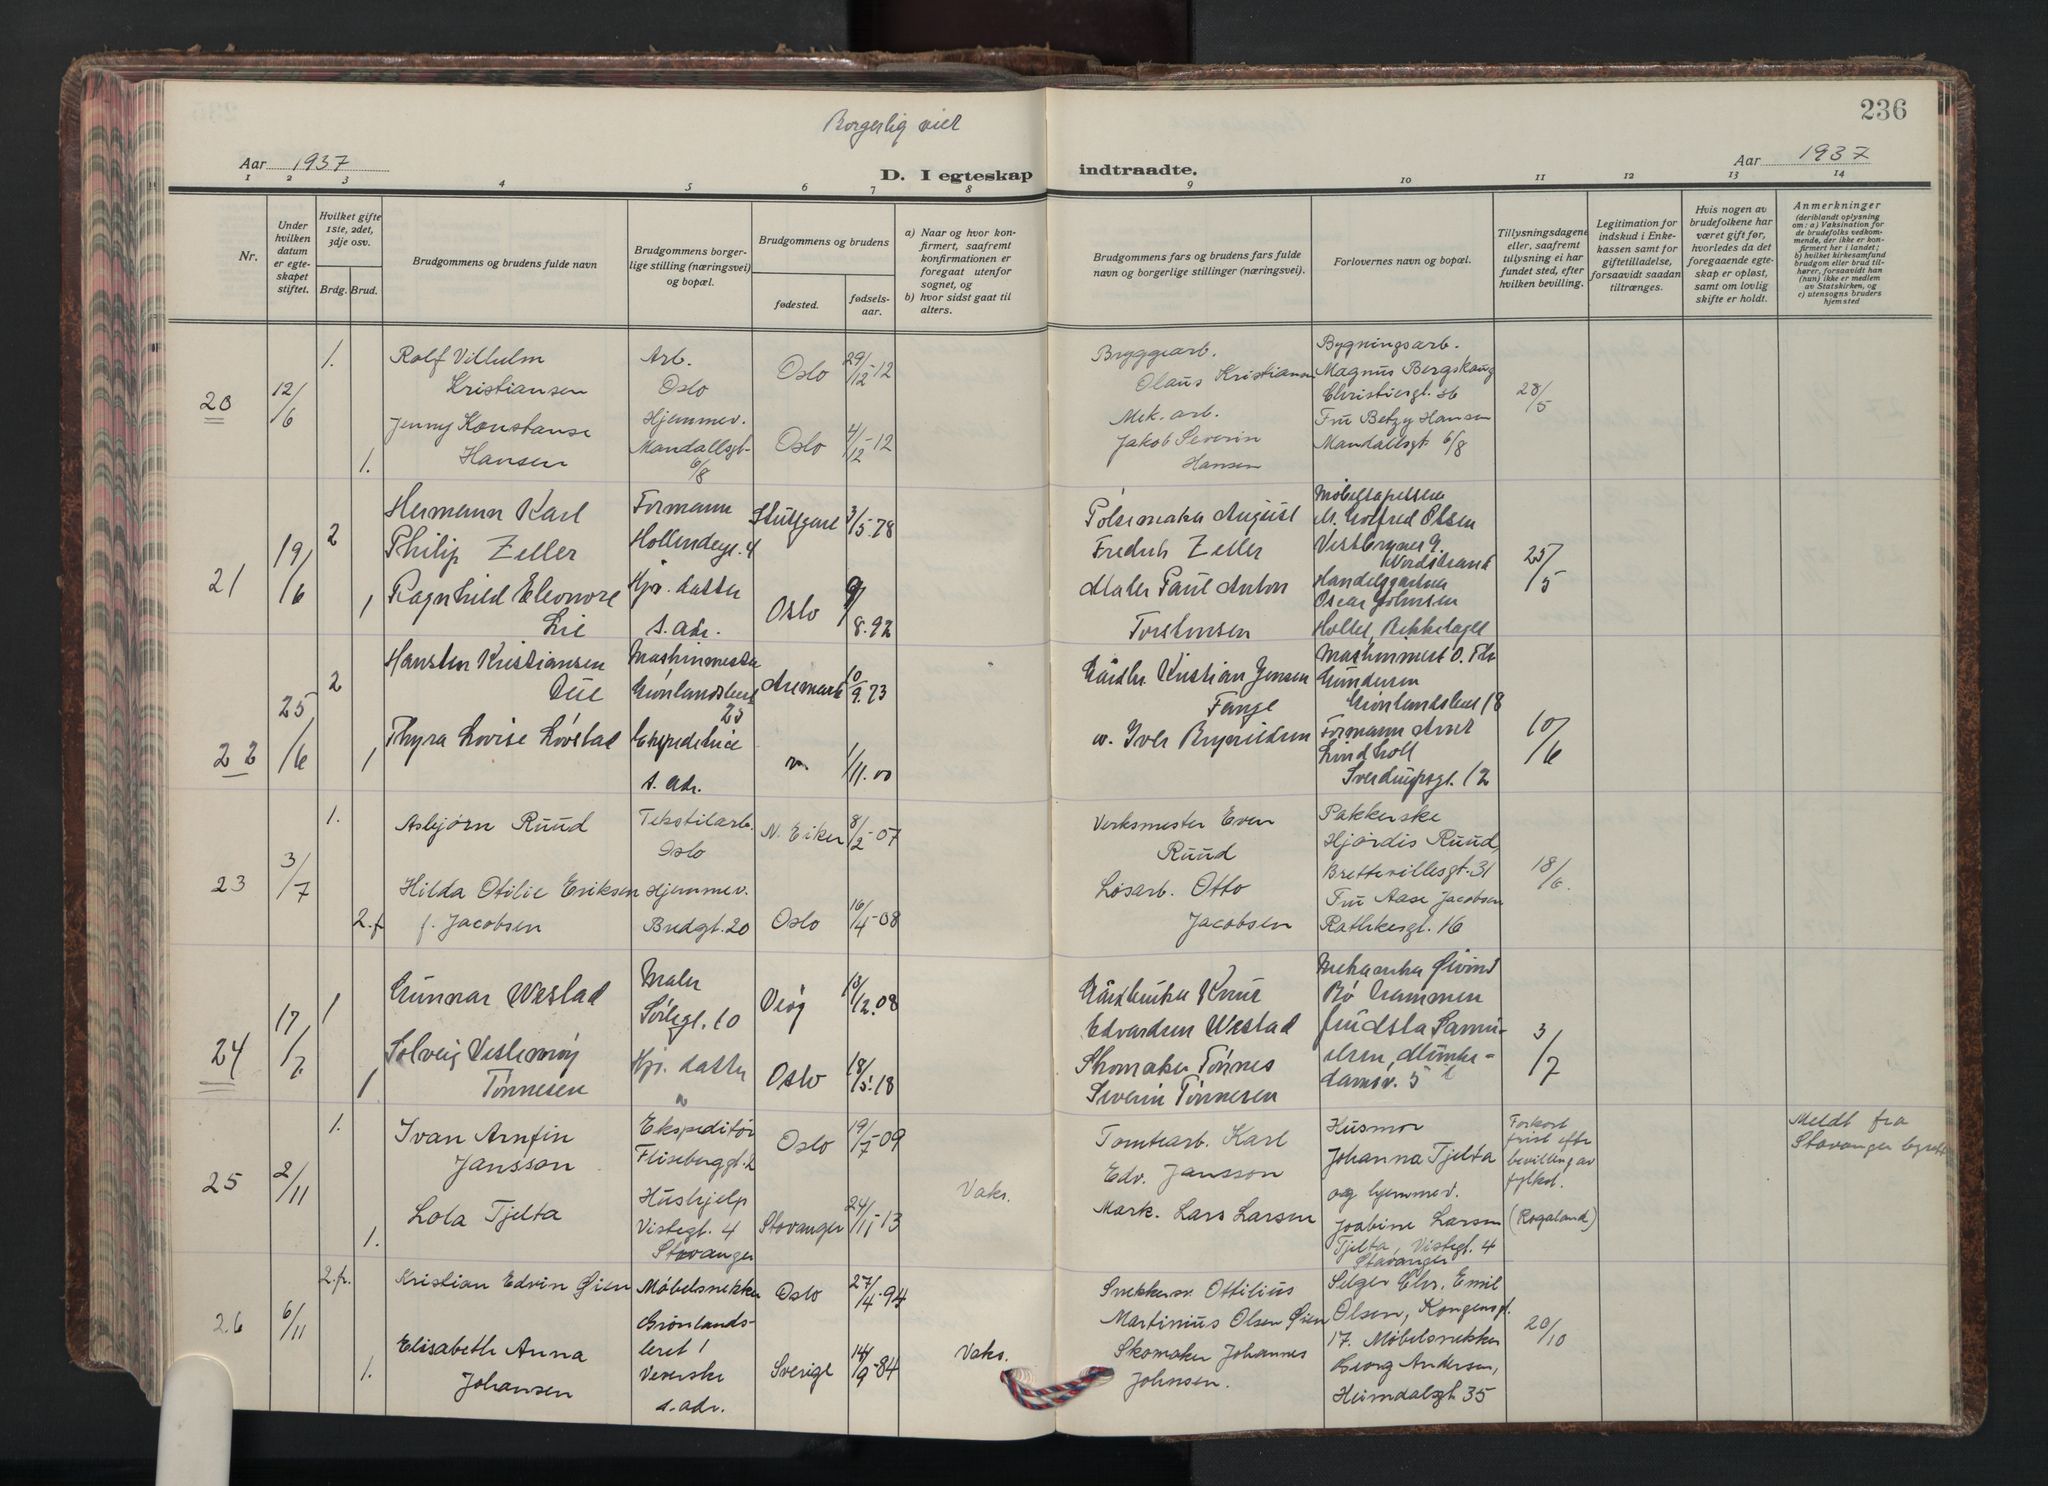 Borgerlig viet
236
Aar 1937
D. I egteskap indtraadte.
Aar 1937
1 2 3 4 5 6 7 8 9 10 11 12 13 14
Nr.
Under hvilken datum er egteskapet stiftet.
Hvilket gifte 1ste, 2det, 3dje osv.
Brdg. Brud.
Brudgommens og brudens fulde navn
Brudgommens borgerlige stilling (næringsvei) og bopæl.
Brudgommens og brudens
fødested.
fødselsaar.
a) Naar og hvor konfirmert, saafremt konfirmationen er foregaat utenfor sognet, og
b) hvor sidst gaat til alters.
Brudgommens fars og brudens fars fulde navn og borgerlige stillinger (næringsvei).
Forlovernes navn og bopæl.
Tillysningsdagene eller, saafremt tillysning ei har fundet sted, efter hvilken bevilling.
Legitimation for indskud i Enkekassen samt for giftetilladelse, forsaavidt saadan tiltrænges.
Hvis nogen av brudefolkene har været gift før, hvorledes da det foregaaende egteskap er opløst, samt om lovlig skifte er holdt.
Anmerkninger
(deriblandt oplysning om: a) Vaksination for de brudefolks vedkommende, der ikke er konfirmert her i landet; b) hvilket kirkesamfund brudgom eller brud tilhører, forsaavidt han (hun) ikke er medlem av Statskirken, og c) utensogns bruders hjemsted
20
12/6
1.
Rolf Vilhelm
Kristiansen
Arb.
Oslo
Oslo
29/12-12
Bryggearb.
Olaus Kristiansen
Bygningsarb.
Magnus Bergskaug
Christiesgt. 36
28/5
1.
Jenny Konstanse
Hansen
Hjemmev.
Mandallsgt.
6/8
Oslo
4/12-12
Mek. arb.
Jakob Severin
Hansen
Fru Betzy Hansen
Mandallsgt 6/8
21
19/6
2
Hermann Karl
Philip Zeller
Formann
Hollendergt. 4
Stuttgart
3/5.78
Pølsemaker August
Fredrik Zeller
M. Golfred Olsen
Nordstrand
25/5
1
Ragnhild Eleonore
Lie
Hjv. datter
s. adr.
Oslo
9/8.92
Maler Paul Anton
Torstensen
Handelsgartner
Oscar Johnsen
Holtet, Bekkelaget
22
25/6
2
Hansten Kristiansen
Due
Maskinmester
Grønlandsleret
25
Aremark
10/9.73
Gårdbr. Kristian Jensen
Fange
Maskinmest. O. Th.
Gundersen
Grønlandsleret 18
10/6
1
Thyra Lovise Løvstad
Ekspeditrice
s. adr.
1/11.00
Iver
Formann Arnt
Lindholt
Sverdrupsgt. 12
23
3/7
1.
Asbjørn Ruud
Tekstilarb.
Oslo
N. Eiker
8/2-07
Verksmester Even
Ruud
Pakkerske
Hjørdis Ruud,
Brettevillesgt. 31
18/6.
2.f
Hilda Otilie Eriksen
f. Jacobsen
Hjemmev.
Bredgt. 20
Oslo
16/4-08
Løsarb. Otto
Jacobsen
Fru Aase Jacobsen
Rathkesgt. 16
24
17/7
1
Gunnar Westad
Maler
Sørligt. 10
Veøy
13/12.08
Gårdbruker Knut
Edvardsen Westad
Mekaniker Øivind
Bø Drammen
3/7
1
Solveig Veslemøy
Tønnesen
Hjv. datter
"
Oslo
18/5.18
Skomaker Tønnes
Severin Tønnesen
Munkedamsv. 5
25
2/11
1.
Ivan Arnfin
Jansson
Ekspeditør
Fliseberggt. 2
Oslo
19/7-09
Tomtearb. Karl
Edv. Jansson
Husmor
Johanna Tjelta
og hjemmev.
Forkort.
frist efter
bevilling av
fylket.
(Rogaland)
Meldt fra
Stavanger byrett
1.
Lola Tjelta
Hushjelp
Vistegt. 4
Stavanger
Stavanger
24/11-13
Vaks.
Mark. Lars Larsen
Joabine Larsen
Tjelta, Vistegt. 4
Stavanger
26
6/11
2.fr.
Kristian Edvin Øien
Møbelsnekker
Grønlands-
leret 1
Oslo
27/4-94
Snekkersv. Ottilius
Martinius Olsen Øien
Selger Chr. Emil
Olsen, Kongensgt.
17. Møbelsnekker
20/10
1.
Elisabeth Anna
Johansen
Veverske
s. adr.
Sverige
14/9-84
Vaks.
Skomaker Johannes
Johnsen.
Georg Andersen,
Heimdalsgt. 35